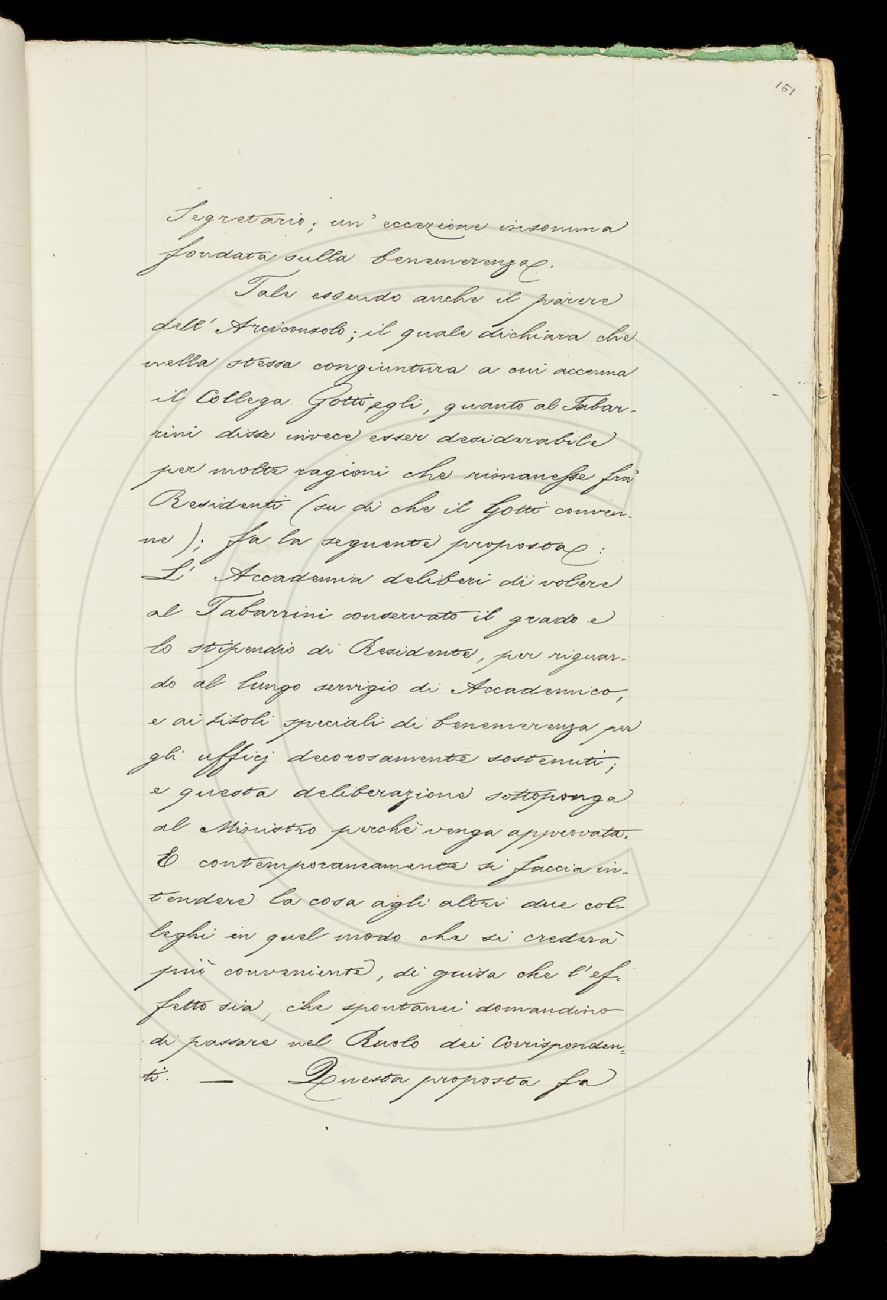 151
Segretario; un' eccezione insomma
fondata sulla benemerenza.
Tale essendo anche il parere
dell' Arciconsolo; il quale dichiara che
nella stessa congiuntura a cui accenna
il Collega Gotti egli, quanto al Tabar-
rini disse invece esser desiderabile
per molte ragioni che rimanesse fra'
Residenti (su di che il Gotti conven-
ne); fa la seguente proposta:
L' Accademia deliberi di volere
al Tabarrini conservato il grado e
lo stipendio di Residente, per riguar-
do al lungo servigio di Accademico,
e ai titoli speciali di benemerenza per
gli ufficj decorosamente sostenuti;
e questa deliberazione sottoponga
al Ministro perchè venga approvata.
E contemporaneamente si faccia in-
tendere la cosa agli altri due col-
leghi in quel modo che si crederà
più conveniente, di guisa che l'ef-
fetto sia, che spontanei domandino
di passare nel Ruolo dei Corrisponden-
ti. — Questa proposta fa